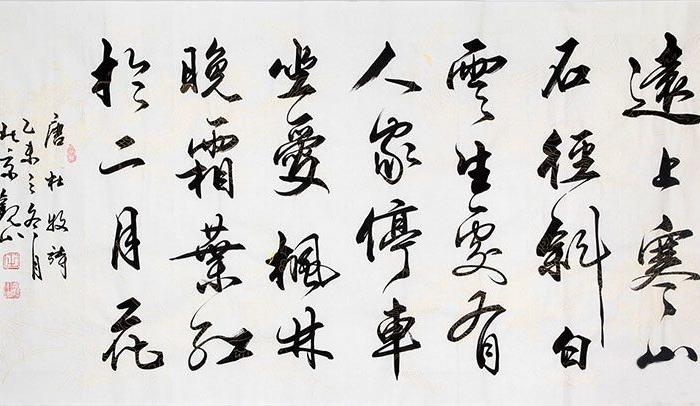 遠上寒山
石徑斜白
雲生處有
人家停車
坐愛楓林
晚霜葉紅
於二月花
唐杜牧詩
乙未之冬月
於京觀山